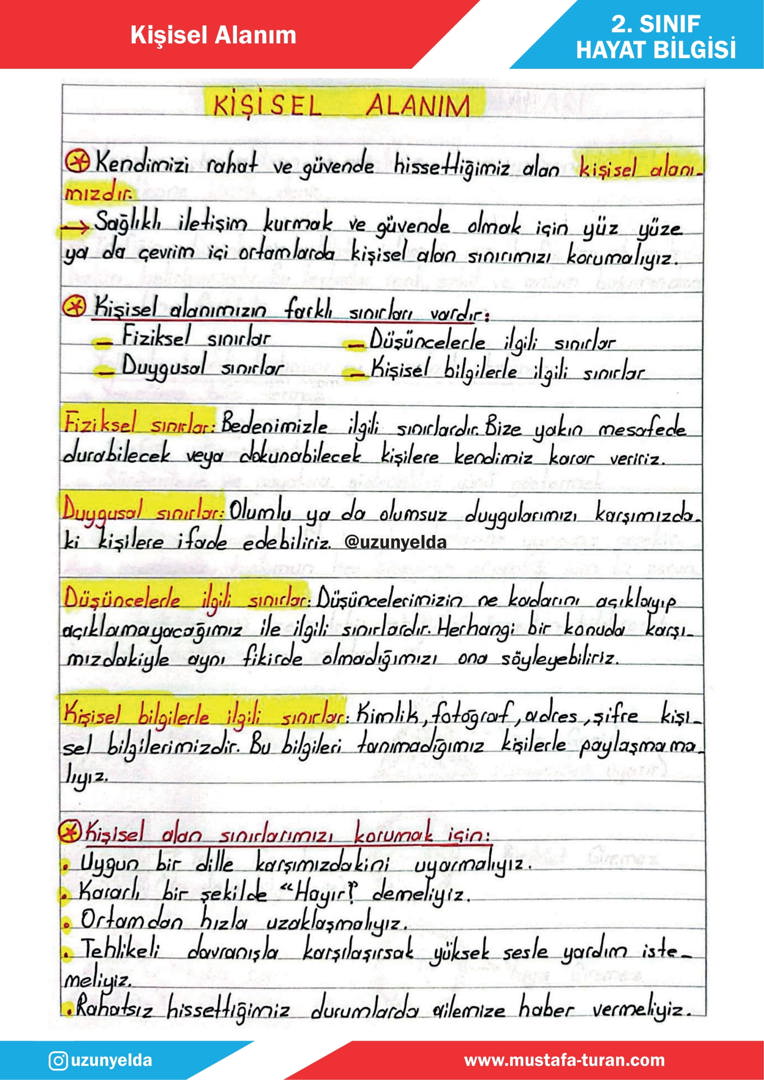 Kişisel Alanım
2. SINIF
HAYAT BİLGİSİ
KİŞİSEL ALANIM
Kendimizi rahat ve güvende hissettiğimiz alan kişisel alanı-
mızdır.
→ Sağlıklı iletişim kurmak ve güvende olmak için yüz yüze
ya da çevrim içi ortamlarda kişisel alan sınırımızı korumalıyız.
Kişisel alanımızın farklı sınırları vardır:
- Fiziksel sınırlar - Düşüncelerle ilgili sınırlar
- Duygusal sınırlar - Kişisel bilgilerle ilgili sınırlar
Fiziksel sınırlar: Bedenimizle ilgili sınırlardır. Bize yakın mesafede
durabilecek veya dokunabilecek kişilere kendimiz karar veririz.
Duygusal sınırlar: Olumlu ya da olumsuz duygularımızı karşımızda-
ki kişilere ifade edebiliriz. @uzunyelda
Düşüncelerle ilgili sınırlar: Düşüncelerimizin ne kadarını açıklayıp
açıklamayacağımız ile ilgili sınırlardır. Herhangi bir konuda karşı-
mızdakiyle aynı fikirde olmadığımızı ona söyleyebiliriz.
Kişisel bilgilerle ilgili sınırlar: Kimlik, fotoğraf, adres, şifre kişi-
sel bilgilerimizdir. Bu bilgileri tanımadığımız kişilerle paylaşmama-
lıyız.
Kişisel alan sınırlarımızı korumak için:
• Uygun bir dille karşımızdakini uyarmalıyız.
• Kararlı bir şekilde "Hayır!" demeliyiz.
• Ortamdan hızla uzaklaşmalıyız.
• Tehlikeli davranışla karşılaşırsak yüksek sesle yardım iste-
meliyiz.
• Rahatsız hissettiğimiz durumlarda ailemize haber vermeliyiz.
uzunyelda
www.mustafa-turan.com